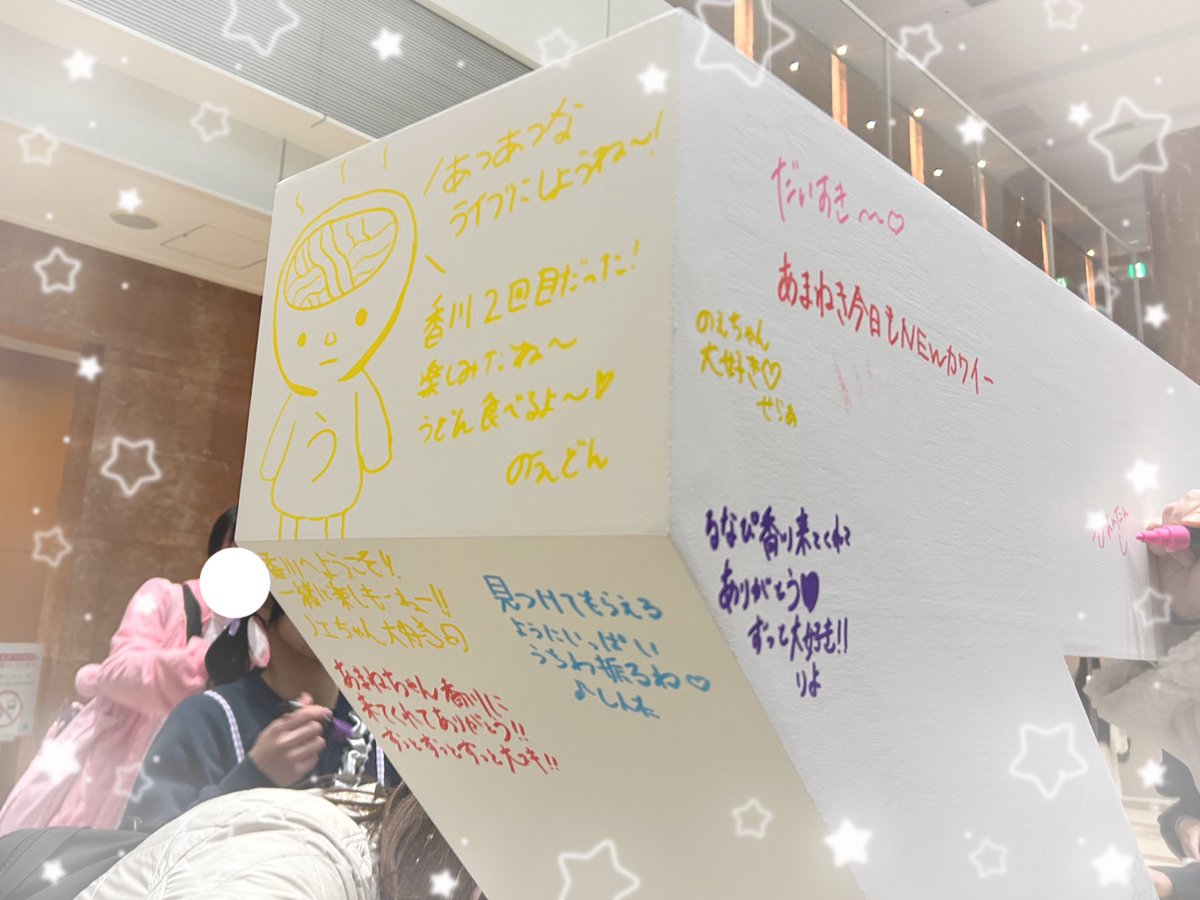 あつあつな
ライブにしようね〜!
香川2回目だった!
楽しみだね〜
うどん食べるよ〜♡
のえどん
う
香川へようこそ!!
一緒に楽しもーねー!!
ノエちゃん大好き
あまねちゃん香川に
来てくれてありがとう!!
ずっとずっとずっと大好き!!
見つけてもらえる
ようにいっぱい
うちわ振るね♡
だいすき〜〜♡
あまねき今日もNEWカワイー
のえちゃん
大好き♡
せらぁ
るなぴ香川来てくれて
ありがとう♥
ずっと大好き!!
りよ